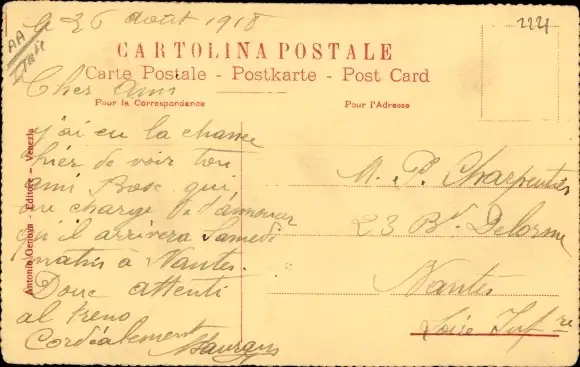 le 26 août 1918
AA
Italie
224
CARTOLINA POSTALE
Carte Postale - Postkarte - Post Card
Cher Ami
Pour la Correspondance
Pour l'Adresse
j'ai eu la chance
hier de voir ton
ami Bosc qui
m'a chargé de t'annoncer
qu'il arrivera Samedi
matin à Nantes.
Donc attenti
al treno
Cordialement
M. P. Charpentier
23 Bd Delorme
Nantes
Loire Infre
Antonio Genova - Editore - Venezia